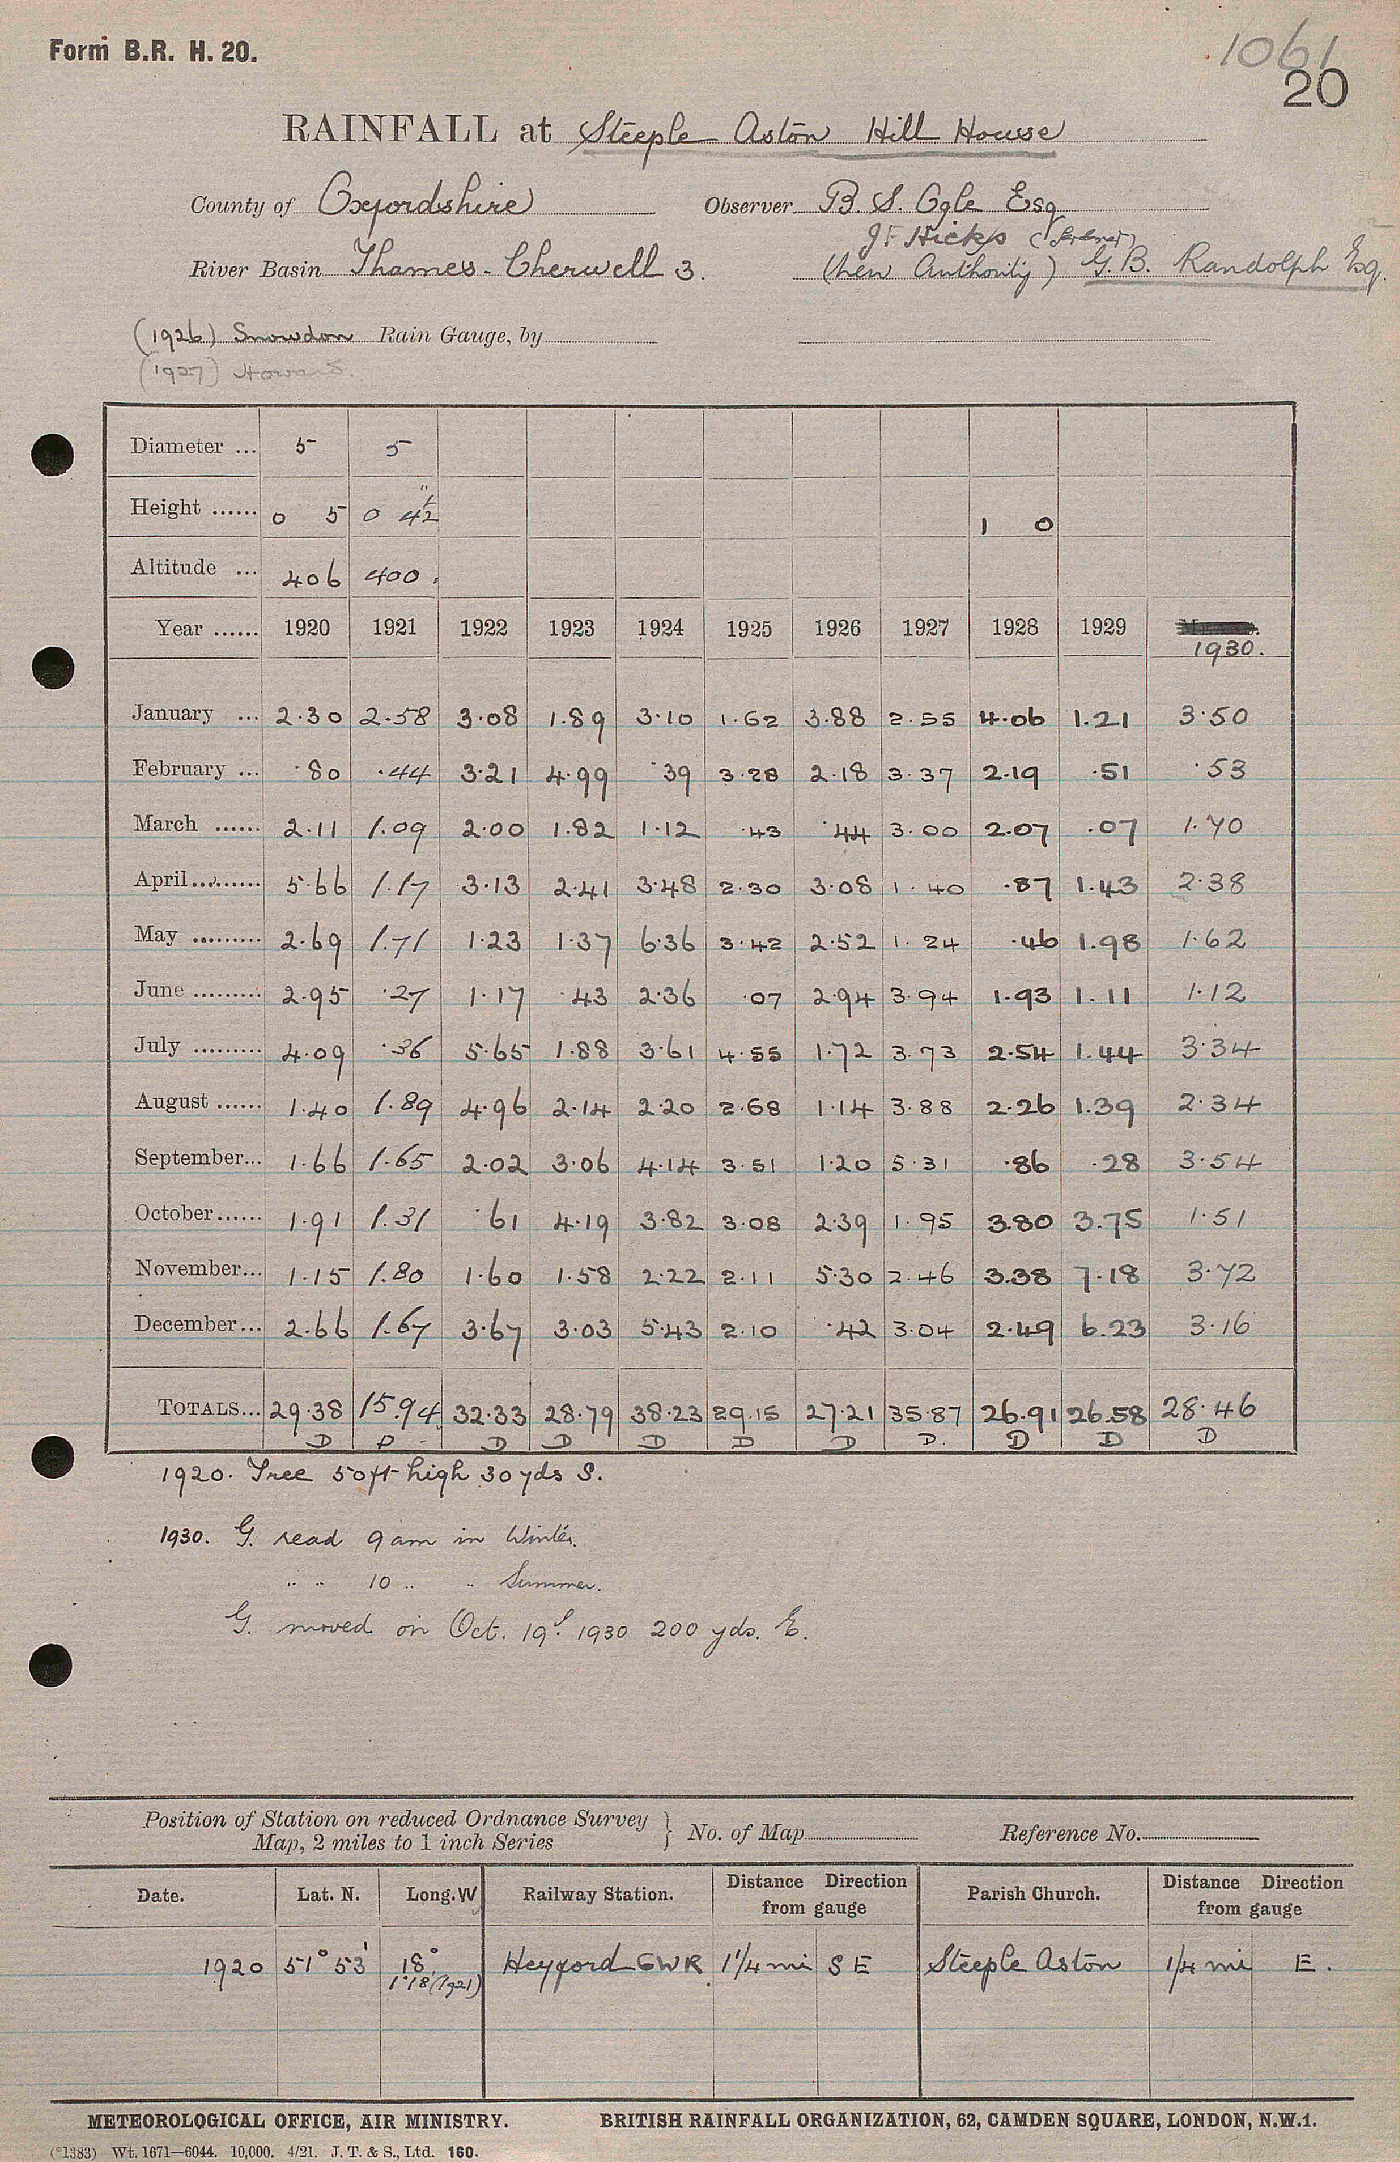 Form B.R. H. 20.
1061
20
RAINFALL at Steeple Aston Hill House
County of Oxfordshire Observer B. S. Ogle Esq
J F Hicks
River Basin Thames - Cherwell 3. (New Authority) G. B. Randolph Esq.
(1926) Snowdon Rain Gauge, by
(1927) Howard.
Diameter ... 5 5
Height ...... 0 5 0 4½" 1 0
Altitude ... 406 400.
Year ...... 1920 1921 1922 1923 1924 1925 1926 1927 1928 1929
1930.
January ... 2.30 2.58 3.08 1.89 3.10 1.62 3.88 2.55 4.06 1.21 3.50
February ... .80 .44 3.21 4.99 .39 3.28 2.18 3.37 2.19 .51 .53
March ...... 2.11 1.09 2.00 1.82 1.12 .43 .44 3.00 2.07 .07 1.70
April ......... 5.66 1.17 3.13 2.41 3.48 2.30 3.08 1.40 .87 1.43 2.38
May ......... 2.69 1.71 1.23 1.37 6.36 3.42 2.52 1.24 .46 1.98 1.62
June ......... 2.95 .27 1.17 .43 2.36 .07 2.94 3.94 1.93 1.11 1.12
July ......... 4.09 .36 5.65 1.88 3.61 4.55 1.72 3.73 2.54 1.44 3.34
August ...... 1.40 1.89 4.96 2.14 2.20 2.68 1.14 3.88 2.26 1.39 2.34
September... 1.66 1.65 2.02 3.06 4.14 3.51 1.20 5.31 .86 .28 3.54
October ...... 1.91 1.31 .61 4.19 3.82 3.08 2.39 1.95 3.80 3.75 1.51
November... 1.15 1.80 1.60 1.58 2.22 2.11 5.30 2.46 3.38 7.18 3.72
December... 2.66 1.67 3.67 3.03 5.43 2.10 .42 3.04 2.49 6.23 3.16
TOTALS... 29.38 15.94 32.33 28.79 38.23 29.15 27.21 35.87 26.91 26.58 28.46
D D D D D D D D. D D D
1920. Tree 50ft high 30yds S.
1930. G. read 9 am in Winter.
" " 10 " " Summer.
G. moved on Oct. 19th 1930 200 yds. E.
Position of Station on reduced Ordnance Survey
Map, 2 miles to 1 inch Series } No. of Map Reference No.
Date. Lat. N. Long. W Railway Station. Distance Direction from gauge Parish Church. Distance Direction from gauge
1920 51° 53' 18° Heyford GWR 1¼ mi S E Steeple Aston ¼ mi E.
1°18 (1921)
METEOROLOGICAL OFFICE, AIR MINISTRY. BRITISH RAINFALL ORGANIZATION, 62, CAMDEN SQUARE, LONDON, N.W.1.
(*1383) Wt. 1671—6044. 10,000. 4/21. J. T. & S., Ltd. 160.